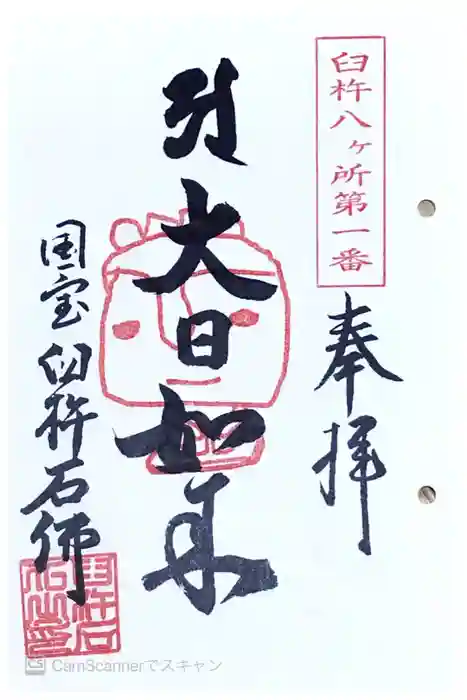 臼杵八ヶ所第一番
奉拝
大日如来
国宝臼杵石佛
CamScannerでスキャン